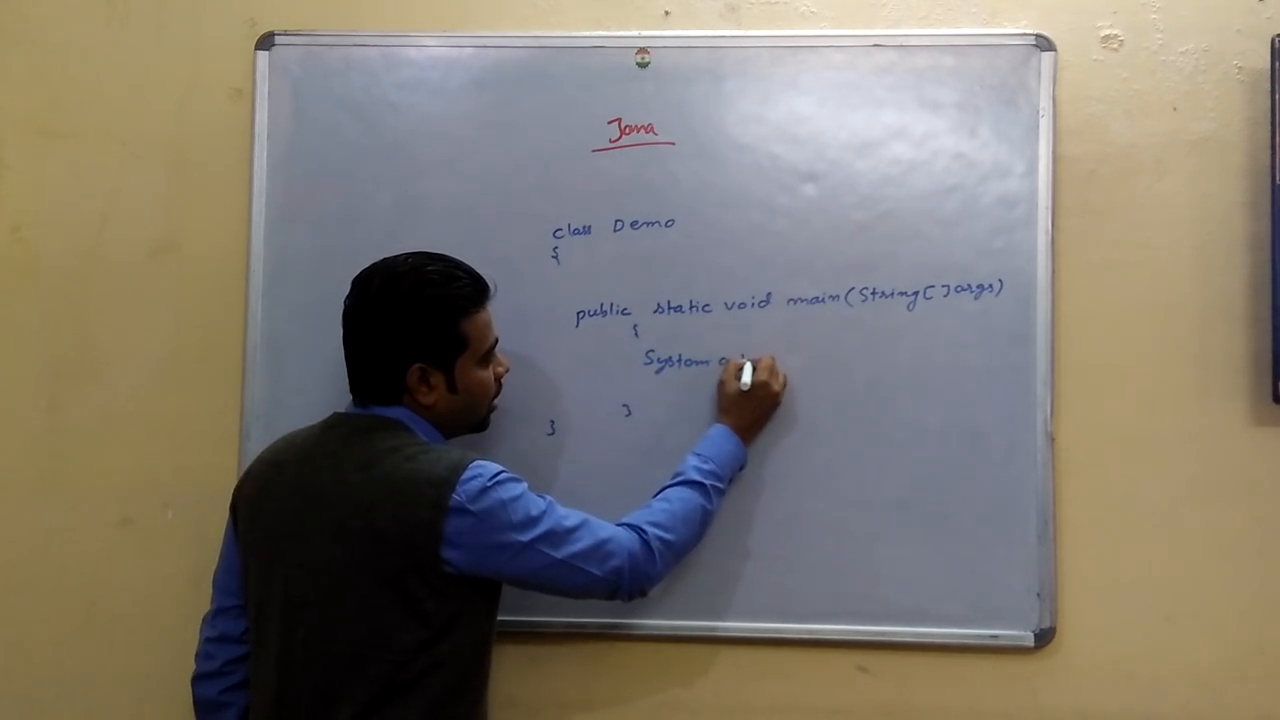 Java
class Demo
{
public static void main(String[]args)
{
System
}
}